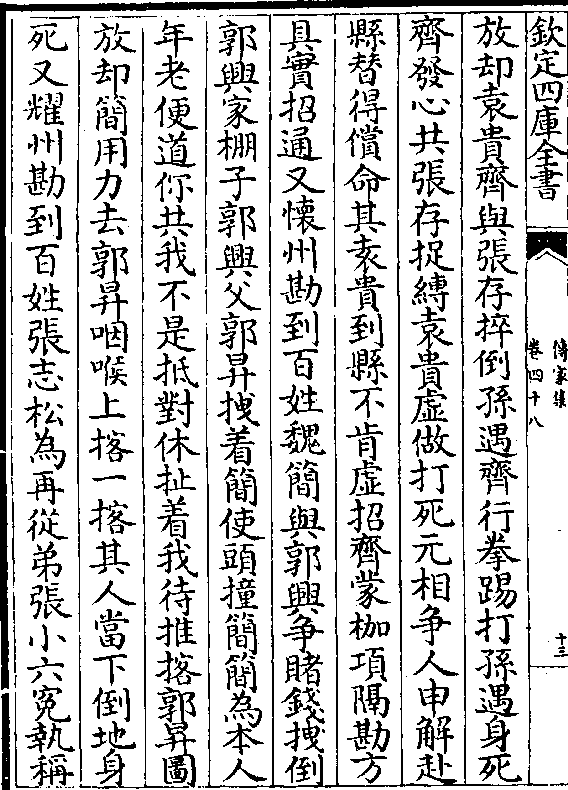 欽定四庫全書
傳家集
卷四十八
十三
放却袁貴齊與張存捽倒孫遇齊行拳踢打孫遇身死
齊發心共張存捉縛袁貴虛做打死元相争人申解赴
縣替得償命其袁貴到縣不肯虛招齊蒙枷項隔勘方
具實招通又懷州勘到百姓魏簡與郭興争賭錢拽倒
郭興家棚子郭興父郭昇拽着簡使頭撞簡簡為本人
年老便道你共我不是抵對休扯着我待推撦郭昇圖
放却簡用力去郭昇咽喉上撦一撦其人當下倒地身
死又耀州勘到百姓張志松為再從弟張小六寃執稱